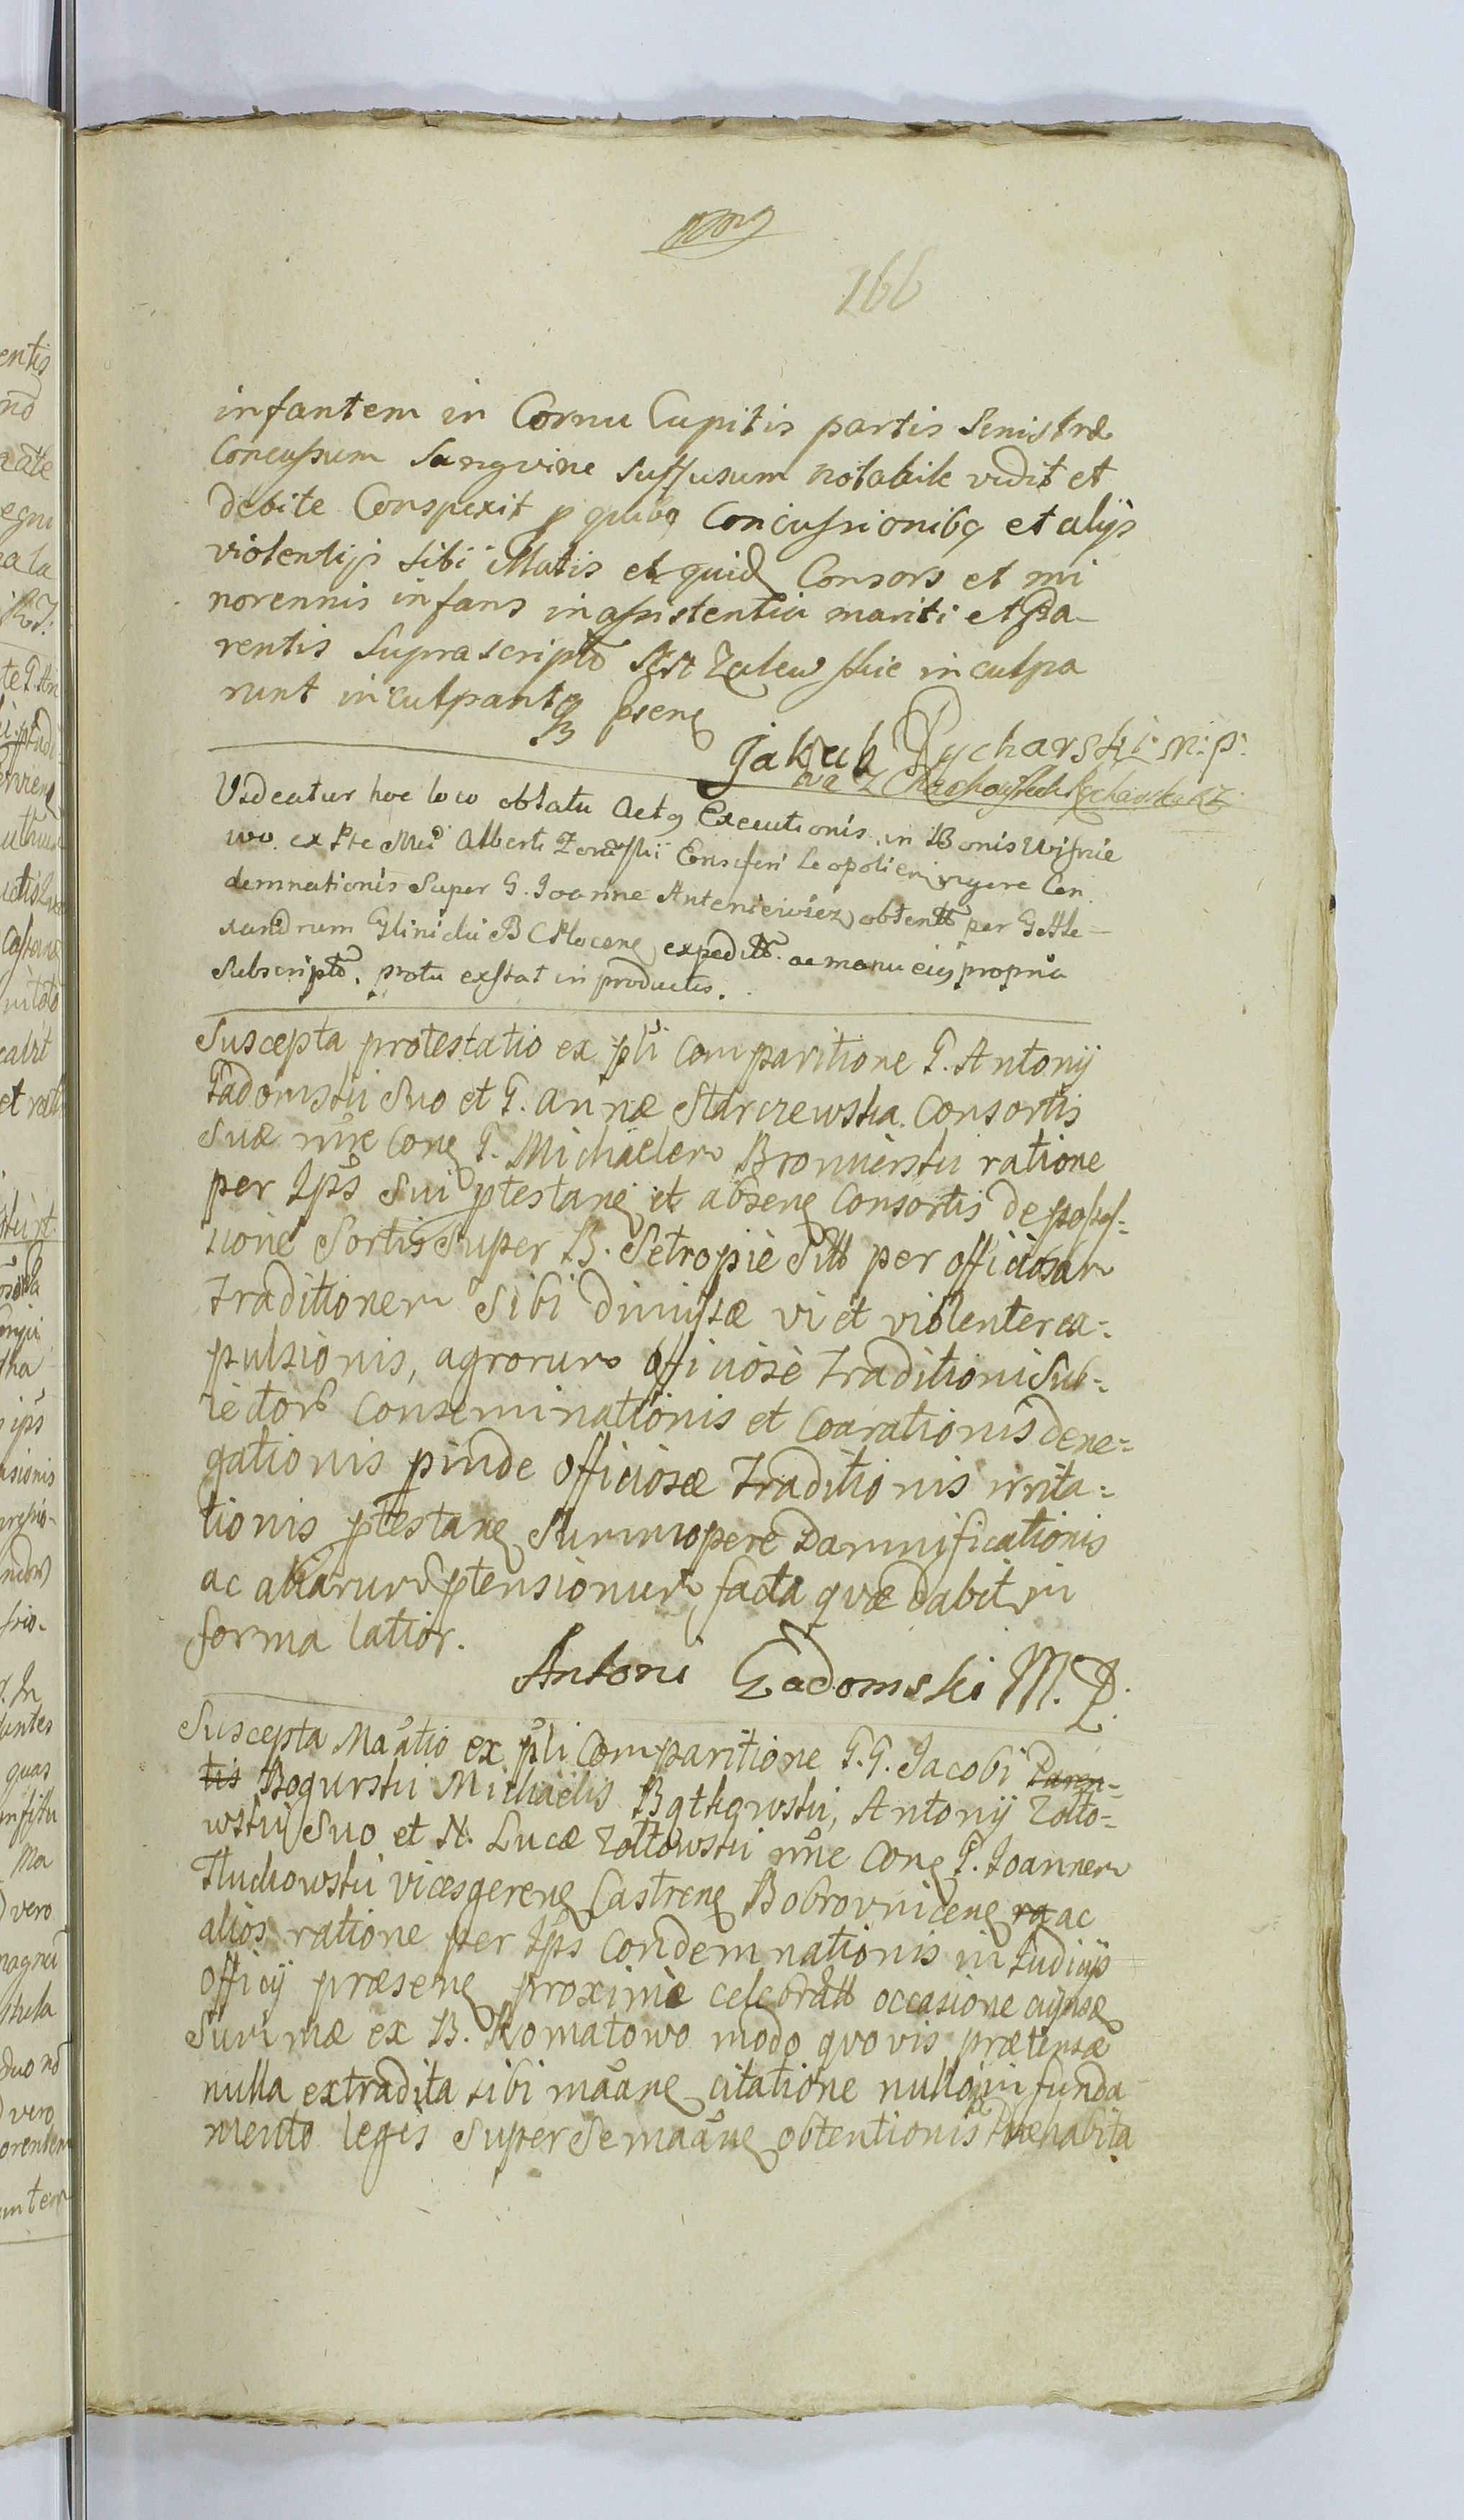 166
infantem in Cornu Capitis partis Sinistræ
Concussum Sangvine suffusum notabile vidit et
debite Conspexit p quibq Concussionibq et alijs
violentijs sibi illatis et quidẽ Consors et mi
norennis infans in assistentia mariti et Pa-
rentis Suprascripto Zalewskie inculpa
runt inculpantq psenq
Jakub Pycharski m: p:
Videatur hoc loco oblatu Actq Executionis in Bonis Wisnie
wo ex Pte Mci Alberti Ensiferi Leopolien vigore Con
demnationis Super G. Joanne Anteniewicz obtent per G Ale-
xandrum Glinicki B C Plocenq expedit ac manu eiq propria
Subscript. protu exstat in productis.
Suscepta protestatio ex pli Comparitione G. Antonij
Gadomski Suo et G. annæ Starczewska Consortis
Suæ nne Conq G. Michäelem Bromierski ratione
per Ips Sui ptestanq et absenq Consortis de posses=
sione Sortis Super B. Setropie Sitt per officiosam
traditionem Sibi dimissæ vi et violenter ex=
pulsionis, agrorum officiosè traditioni Sub=
iector Conseminationis et Coarationis dene=
gationis pinde officiosæ traditionis irrita=
tionis ptestanq Summopere Damnificationis
ac aliarum ptensionum, facta quæ dabit in
forma latior.
Antoni Gadomski M. P.
Suscepta Maãtio ex pli Comparitione G. G. Jacobi Paren=
tis Bogurski Michäelis Bątkowski, Antonij Zołto=
wski Suo et N. Lucæ Zołtowski nne Conq G. Joannem
Tłuchowski vicesgerenq Castrenq Bobrovnicenq ra ac
alios ratione per Ips Condemnationis in Judicijs
Officij præsenq proximè celebratt occasione cujusq
Summæ ex B. Komatowo modo qvovis prætensæ
nulla extradita sibi maãnq citatione nulloq in funda
mento legis Super Se maãnq obtentionis præhabita